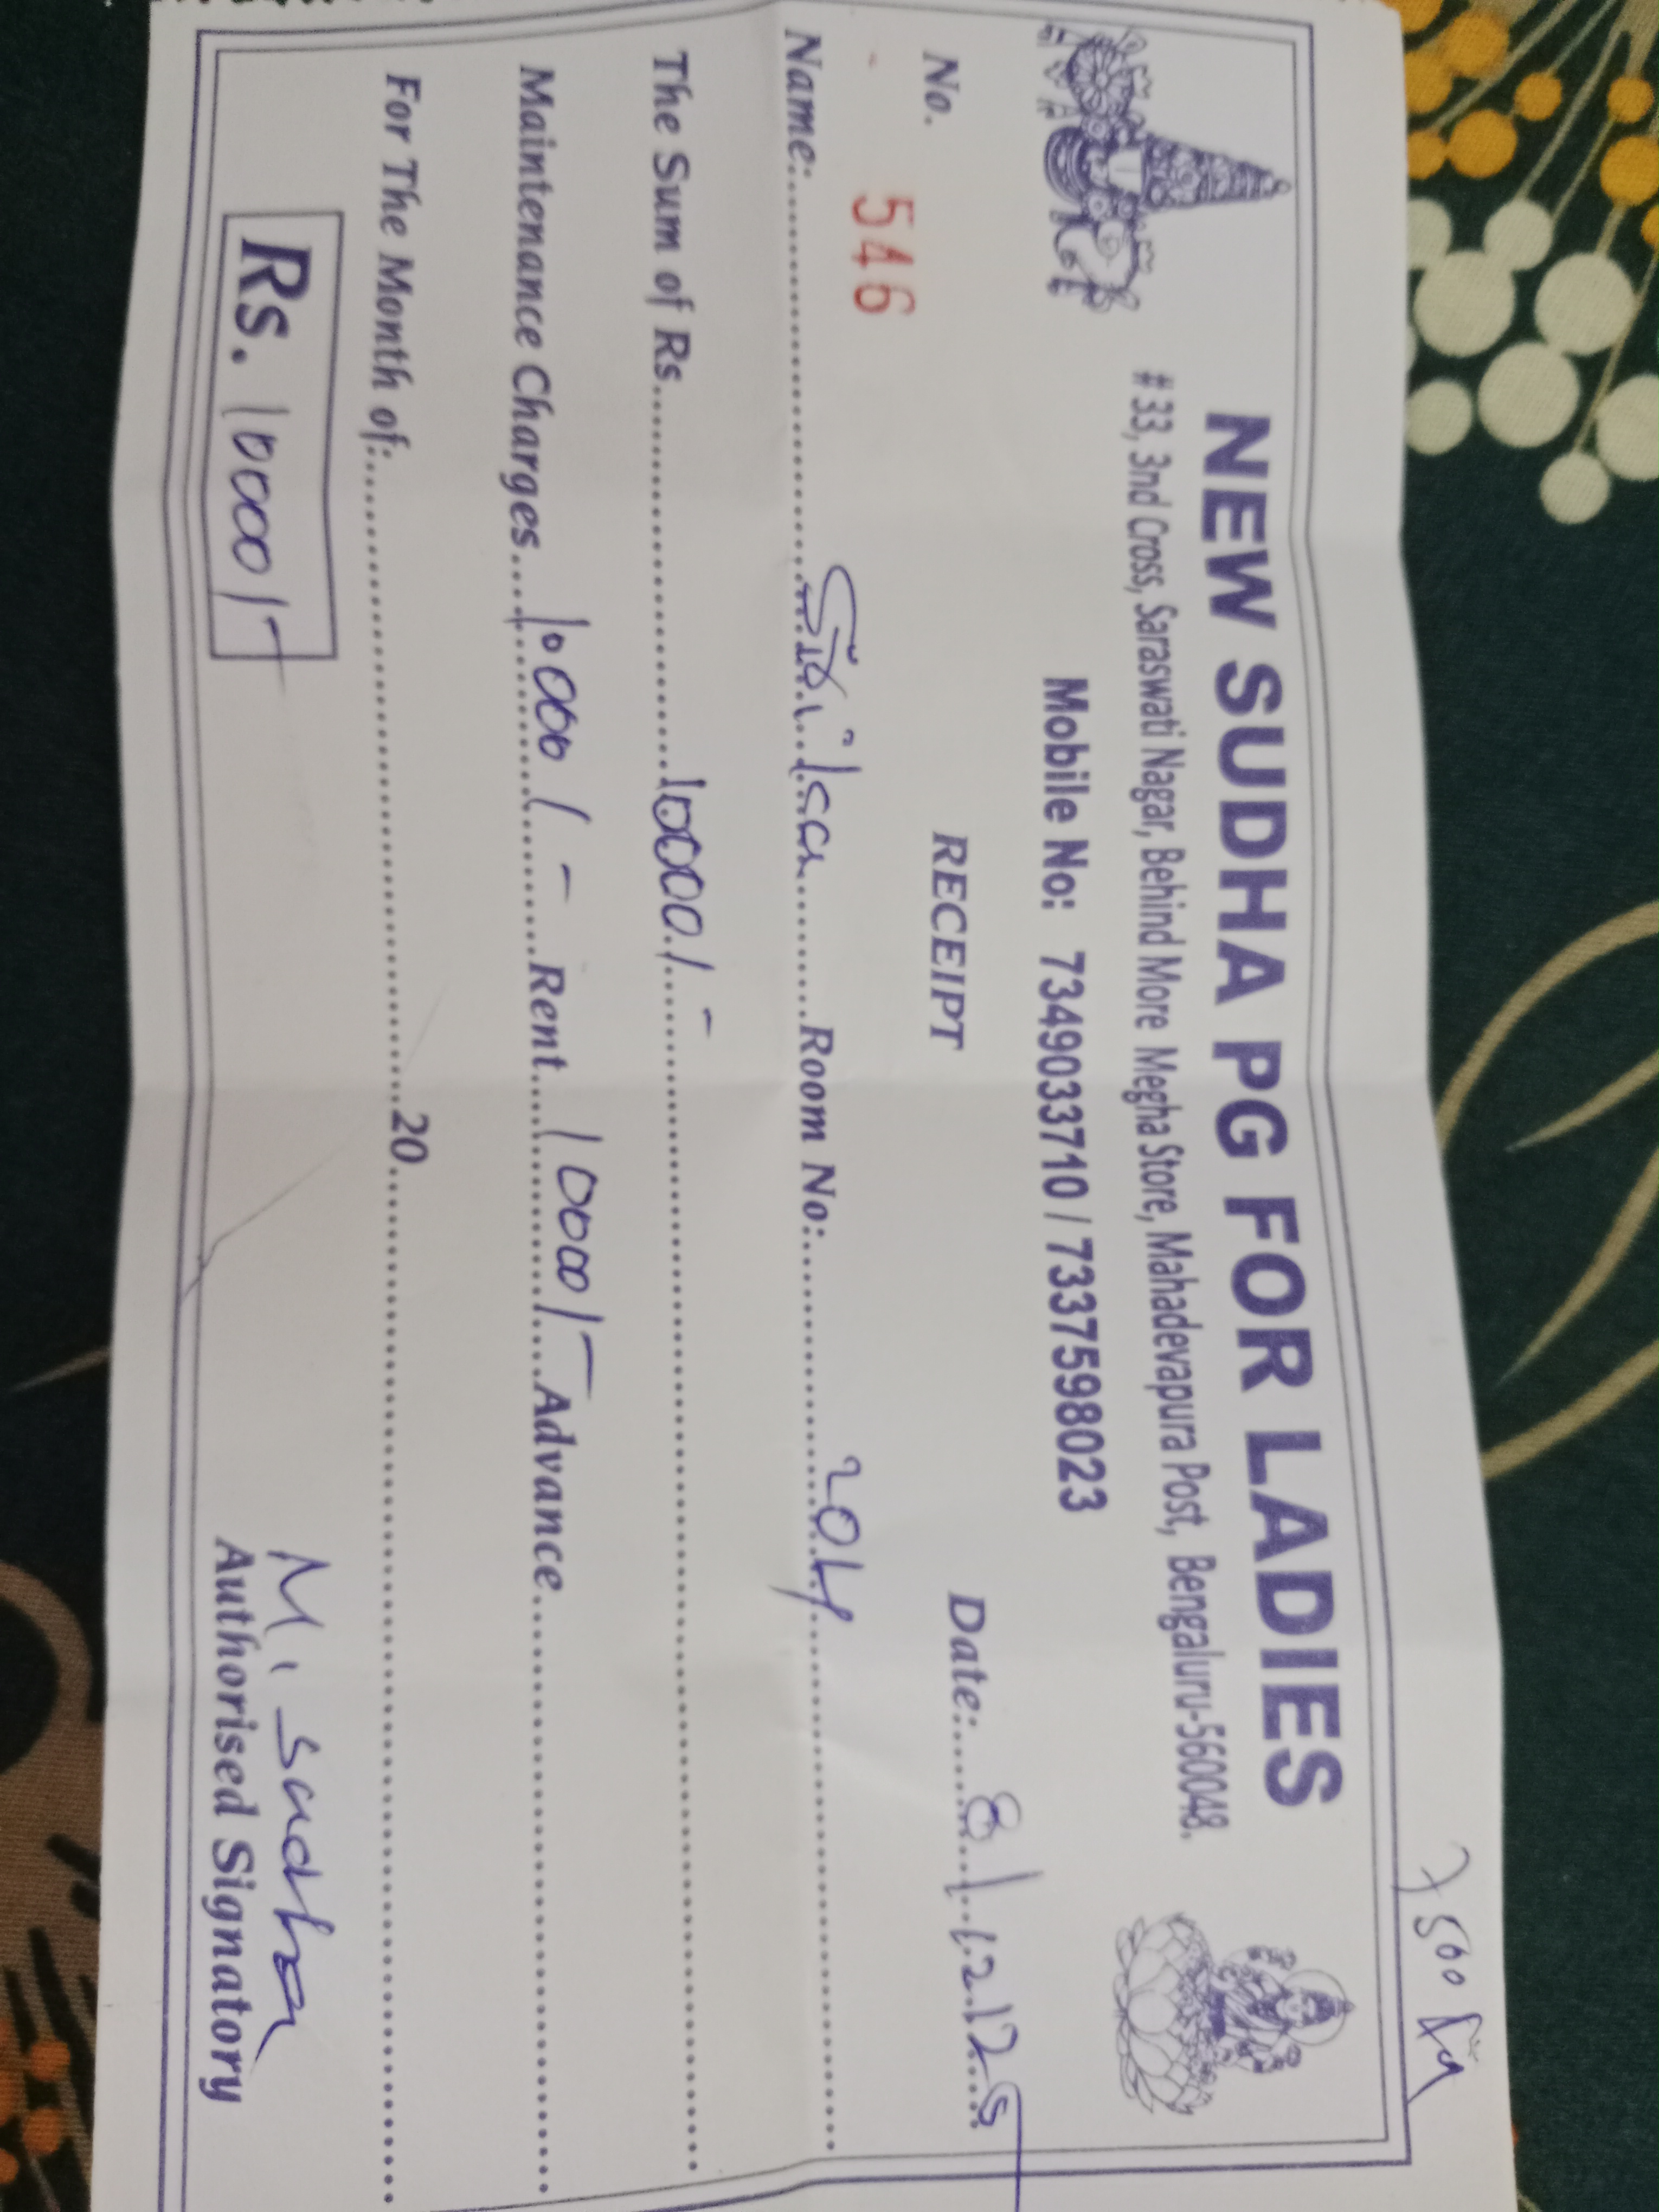 7500
NEW SUDHA PG FOR LADIES
#33, 3nd Cross, Saraswati Nagar, Behind More Megha Store, Mahadevapura Post, Bengaluru-560048.
Mobile No: 7349033710 / 7337598023
No. 546 RECEIPT Date: 8/12/25
Name: Room No: 204
The Sum of Rs. 10000/-
Maintenance Charges 1000/- Rent 10000/- Advance
For The Month of: 20
Rs. 10000/- M. Sudha
Authorised Signatory